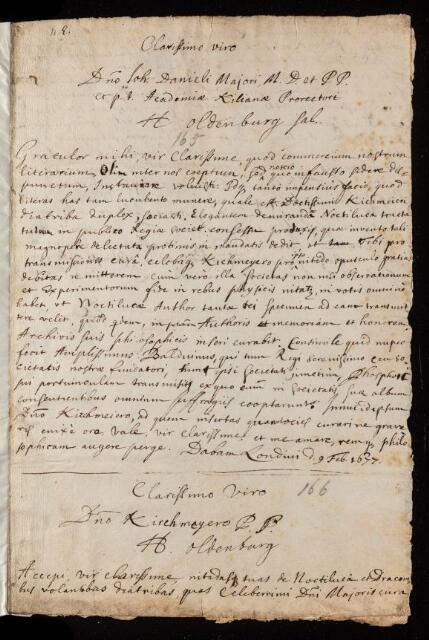 Clarissimo viro
Dno Joh. Danieli Majori M. D. et P P.
et p. t. Academiæ Kilianæ Prorectori
H oldenburg Sal.
165
Gratulor mihi, vir Clarissime, quod commercium nostrum
literarium, olim inter nos coeptum, sed nescio quo infausto sidere dis-
punctum, Instaurare voluisti. Idq tanto impensius facio, quod
literas has tam luculento munere, quale est Doctissimi Kirchmeieri
diatriba duplex, sociasti. Elegantem de miranda Noctiluca tracta
tulum in publico Regiæ Societ. consessu produxi, quæ invento tali
magnopere delectata protinus in mandatis dedit, ut tam Tibi pro
transmissionis cura, celebriq Kirchmeyero pro opusculo gratias
debitas remitterem cum vero illa Societas non nisi observationum
et Experimentorum fide in rebus physicis nitatur, in votis omnino
habet ut Noctilucæ Author tantæ rei Specimen ad eam transmit
tere velit, quod quidem, in Authoris memoriam et honorem
Archivis suis philosophicis inseri curabit. Consimile quid nuper
fecit Amplissimus Balduinus, qui tum Regi serenissimo ceu so-
cietatis nostræ fundatori, tum ipsi Societati junctim, Phosphori
sui portiunculam transmisit, ex quo eum in Societatis suæ album
consentientibus omnium suffragiis cooptarunt.
Dno Kirchmeiero, ad quem insertas quantocius curari ne grave
ris enixe oro. Vale, vir Clarissime, et me amare, remq philo
sophicam augere perge. Dabam Londini d. 9 Feb. 1677.
Clarissimo Viro 166
Dno Kirchmeyero P P.
H. oldenburg
Accepi, vir clarissime, nitidas tuas de Noctiluca et Dracon
ibus volantibus diatribas, quas Celeberrimi Dni Majoris cura